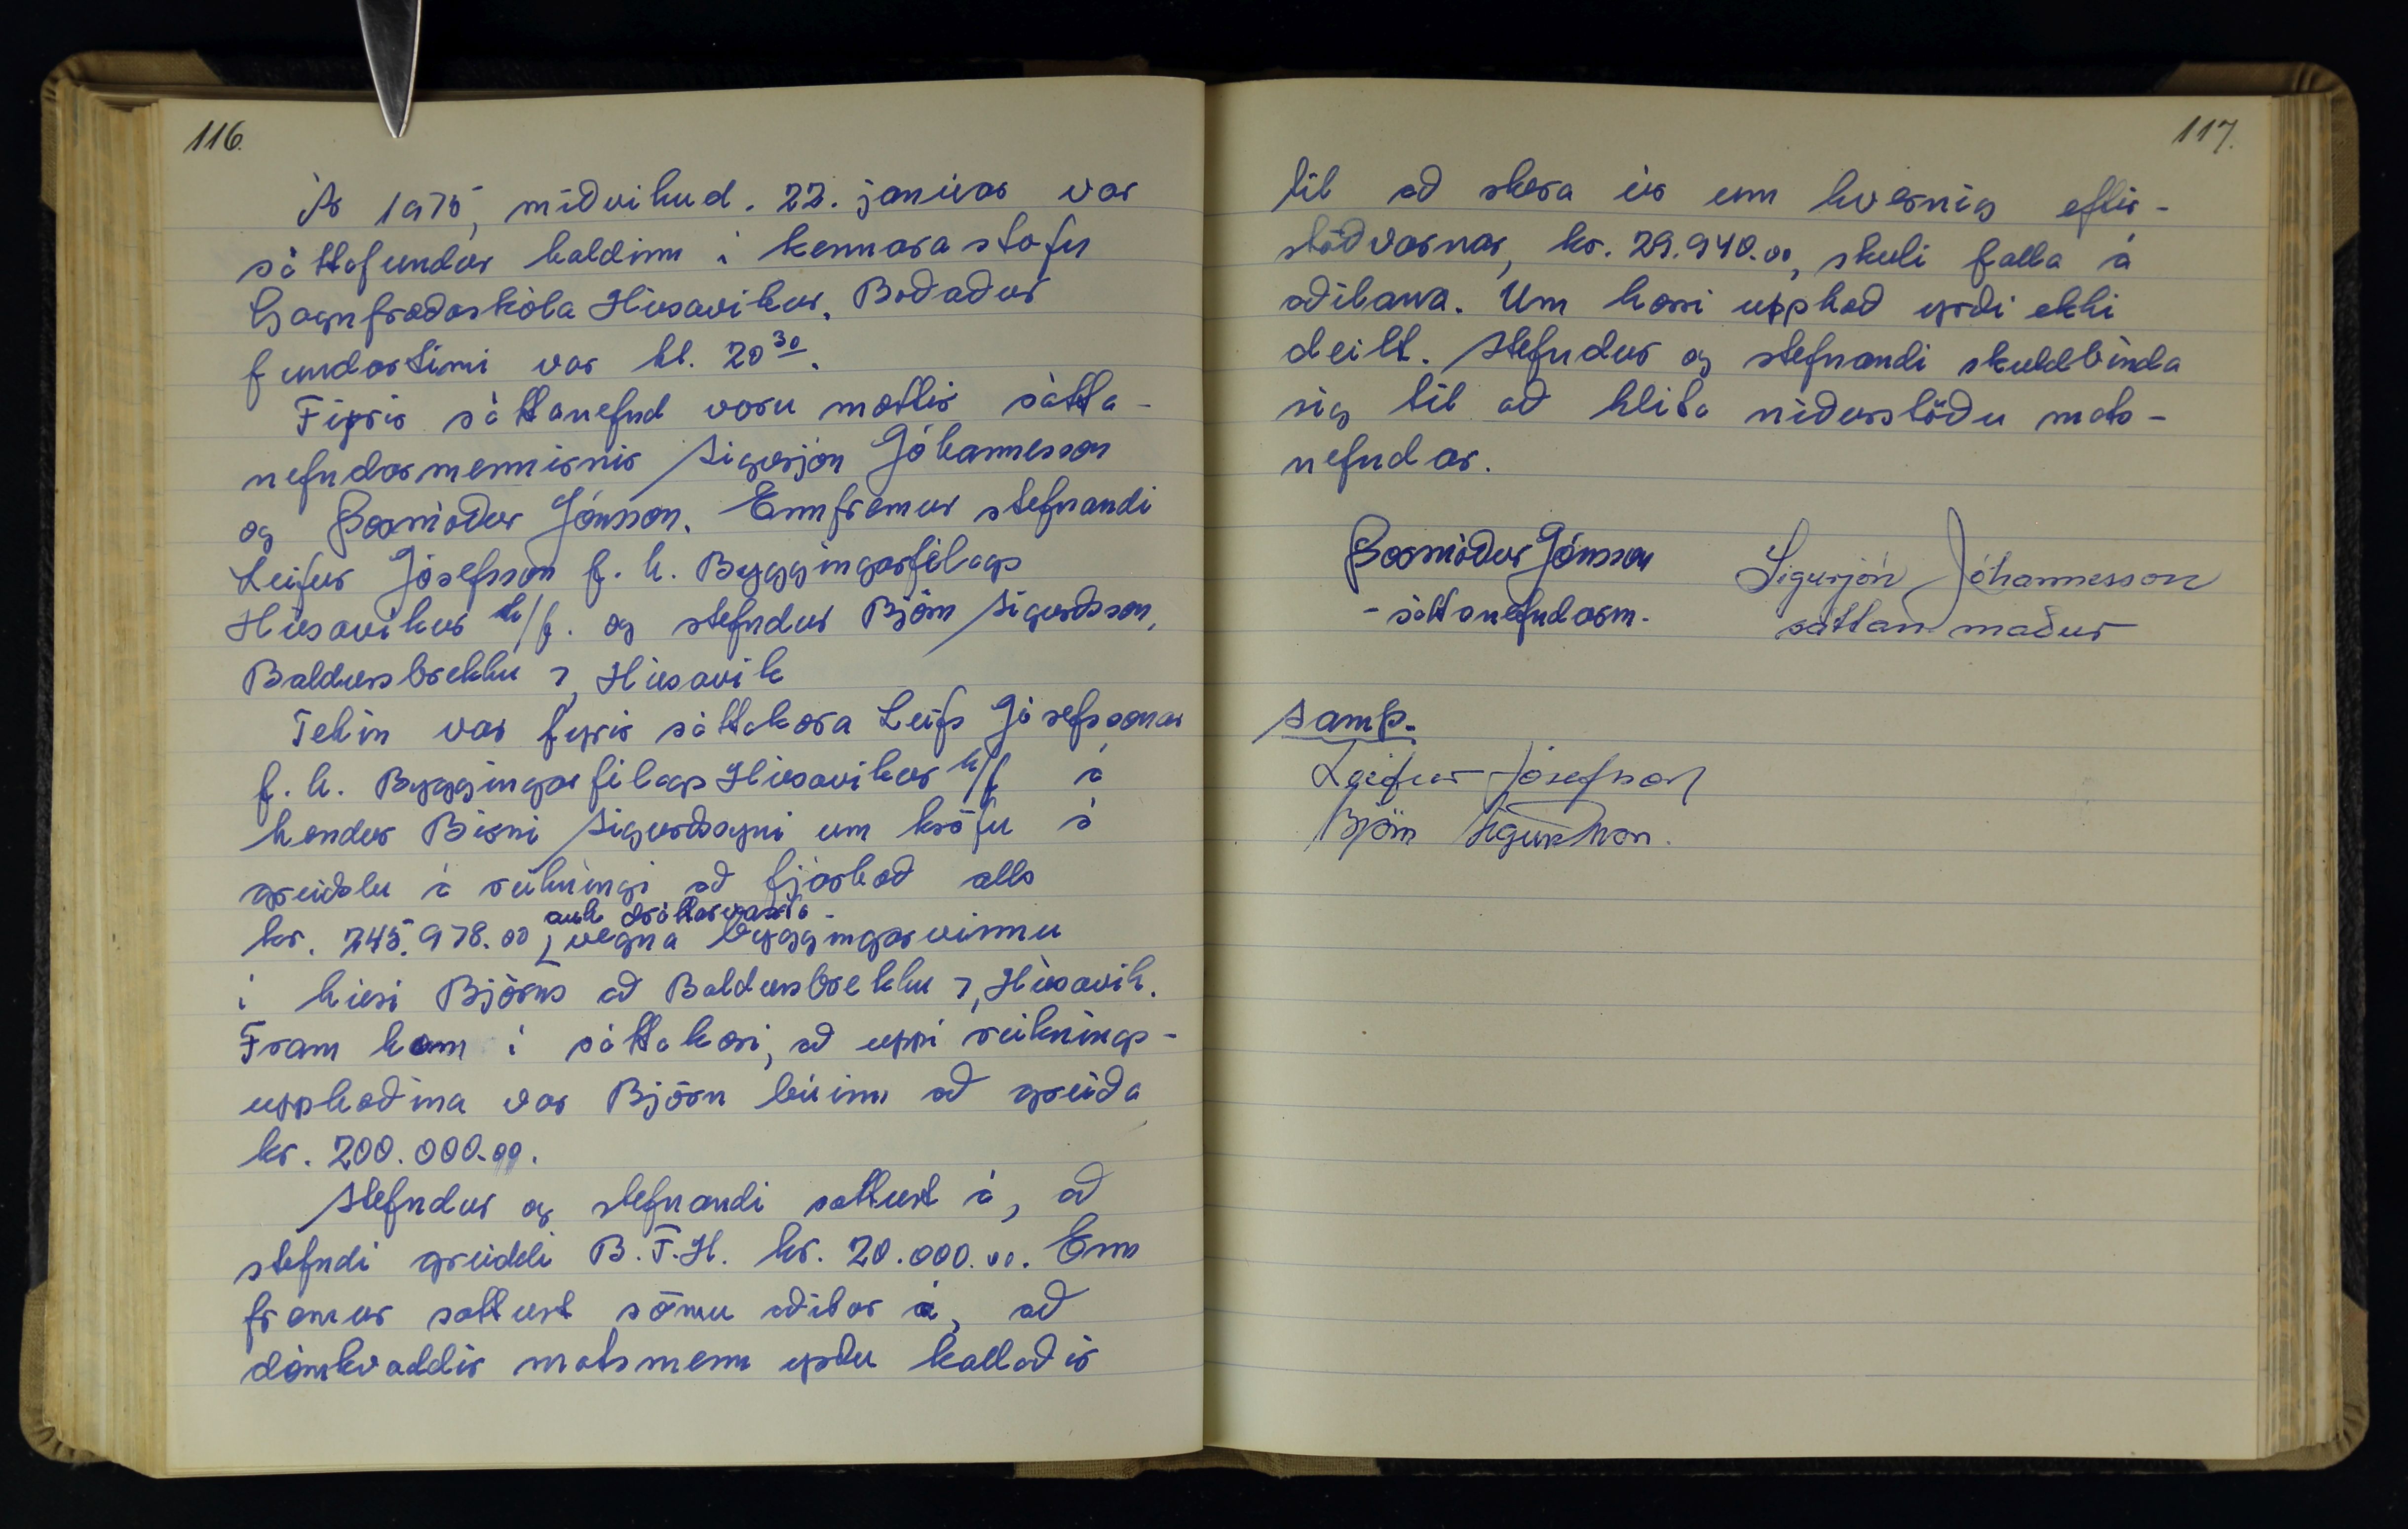 116.
Ár 1975, miðvikud. 22. janúar var
sáttafundur haldinn í kennarastofu
Gagnfræðaskóla Húsavíkur. Boðaður
fundartími var kl. 20³⁰.
Fyrir sáttanefnd voru mættir sátta-
nefndarmennirnir Sigurjón Jóhannesson
og Þormóður Jónsson. Ennfremur stefnandi
Leifur Jósefsson f. h. Byggingarfélags
Húsavíkur h/f. og stefndur Björn Sigurðsson,
Baldursbrekku 7, Húsavík
Tekin var fyrir sáttakæra Leifs Jósefssonar
f. h. Byggingarfélags Húsavíkur h/f á
hendur Birni Sigurðssyni um kröfu á
greiðslu á reikningi að fjárhæð alls
auk dráttarvaxta
kr. 245.978.00 vegna byggingarvinnu
í húsi Björns að Baldursbrekku 7, Húsavík.
Fram kom í sáttakæri, að uppí reiknings-
upphæðina var Björn búinn að greiða
kr. 200.000.00.
Stefndur og stefnandi sættust á, að
stefndi greiddi B.F.H. kr. 20.000.00. Enn
fremur sættust sömu aðilar á, að
dómkvaddir matsmenn yrðu kallaðir
117.
til að skera úr um hvernig eftir-
stöðvarnar, kr. 29.940.00, skuli falla á
aðilana. Um þessi upphæð yrði ekki
deilt. Stefndur og stefnandi skuldbinda
sig til að hlíta niðurstöðu mats-
nefndar.
Þormóður Jónsson Sigurjón Jóhannesson
- sáttanefndarm. sáttan.maður
Samþ.
Leifur Jósefsson
Björn Sigurðsson.